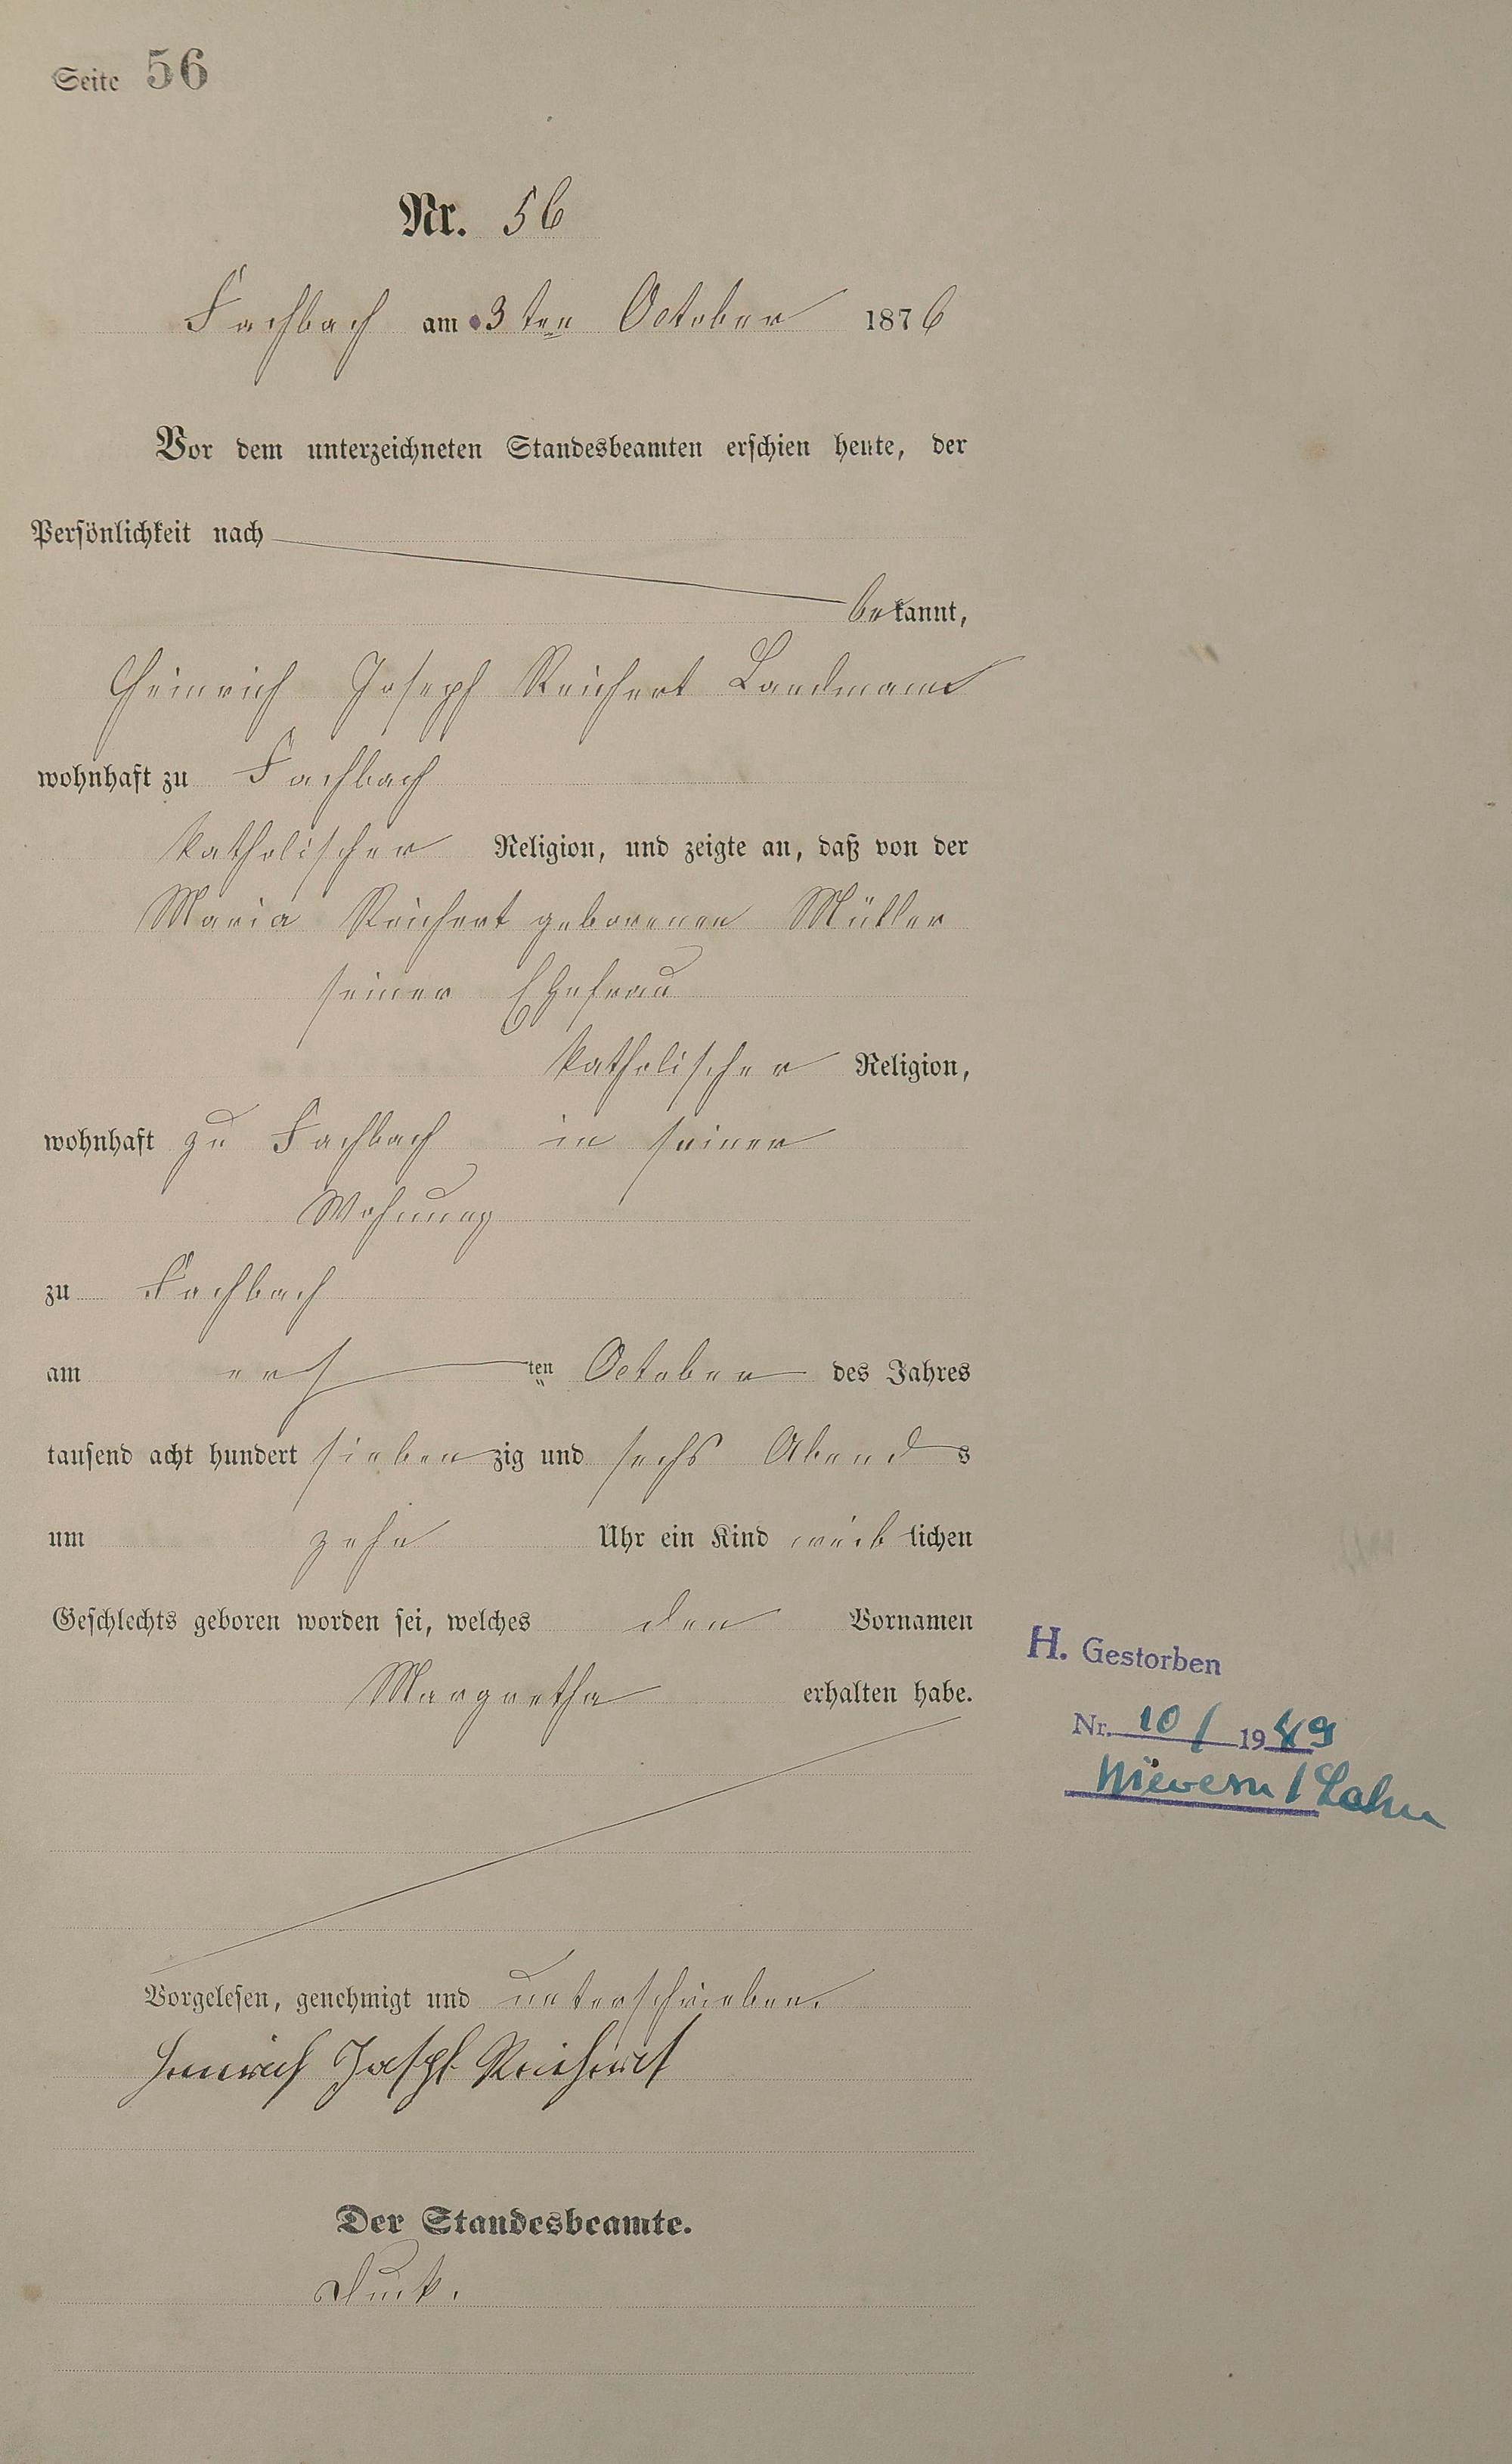 Seite 56
Nr. 56
Fachbach am 3ten October 1876
Vor dem unterzeichneten Standesbeamten erschien heute, der
Persönlichkeit nach
bekannt,
Heinrich Joseph Reichert Landmann
wohnhaft zu Fachbach
katholischer Religion, und zeigte an, daß von der
Maria Reichert geborenen Müller
seiner Ehefrau
katholischer Religion,
wohnhaft zu Fachbach in seiner
Wohnung
zu Fachbach
am ersten October des Jahres
tausend acht hundert siebenzig und sechs Abends
um zehn Uhr ein Kind weiblichen
Geschlechts geboren worden sei, welches den Vornamen
Margretha erhalten habe.
H. Gestorben
Nr. 10/1949
Nievern/Lahn
Vorgelesen, genehmigt und unterschrieben.
Heinrich Joseph Reichert
Der Standesbeamte.